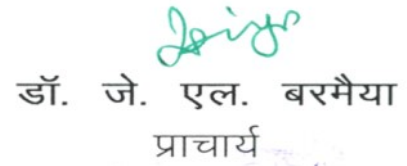 डॉ. जे. एल. बरमैया
प्राचार्य